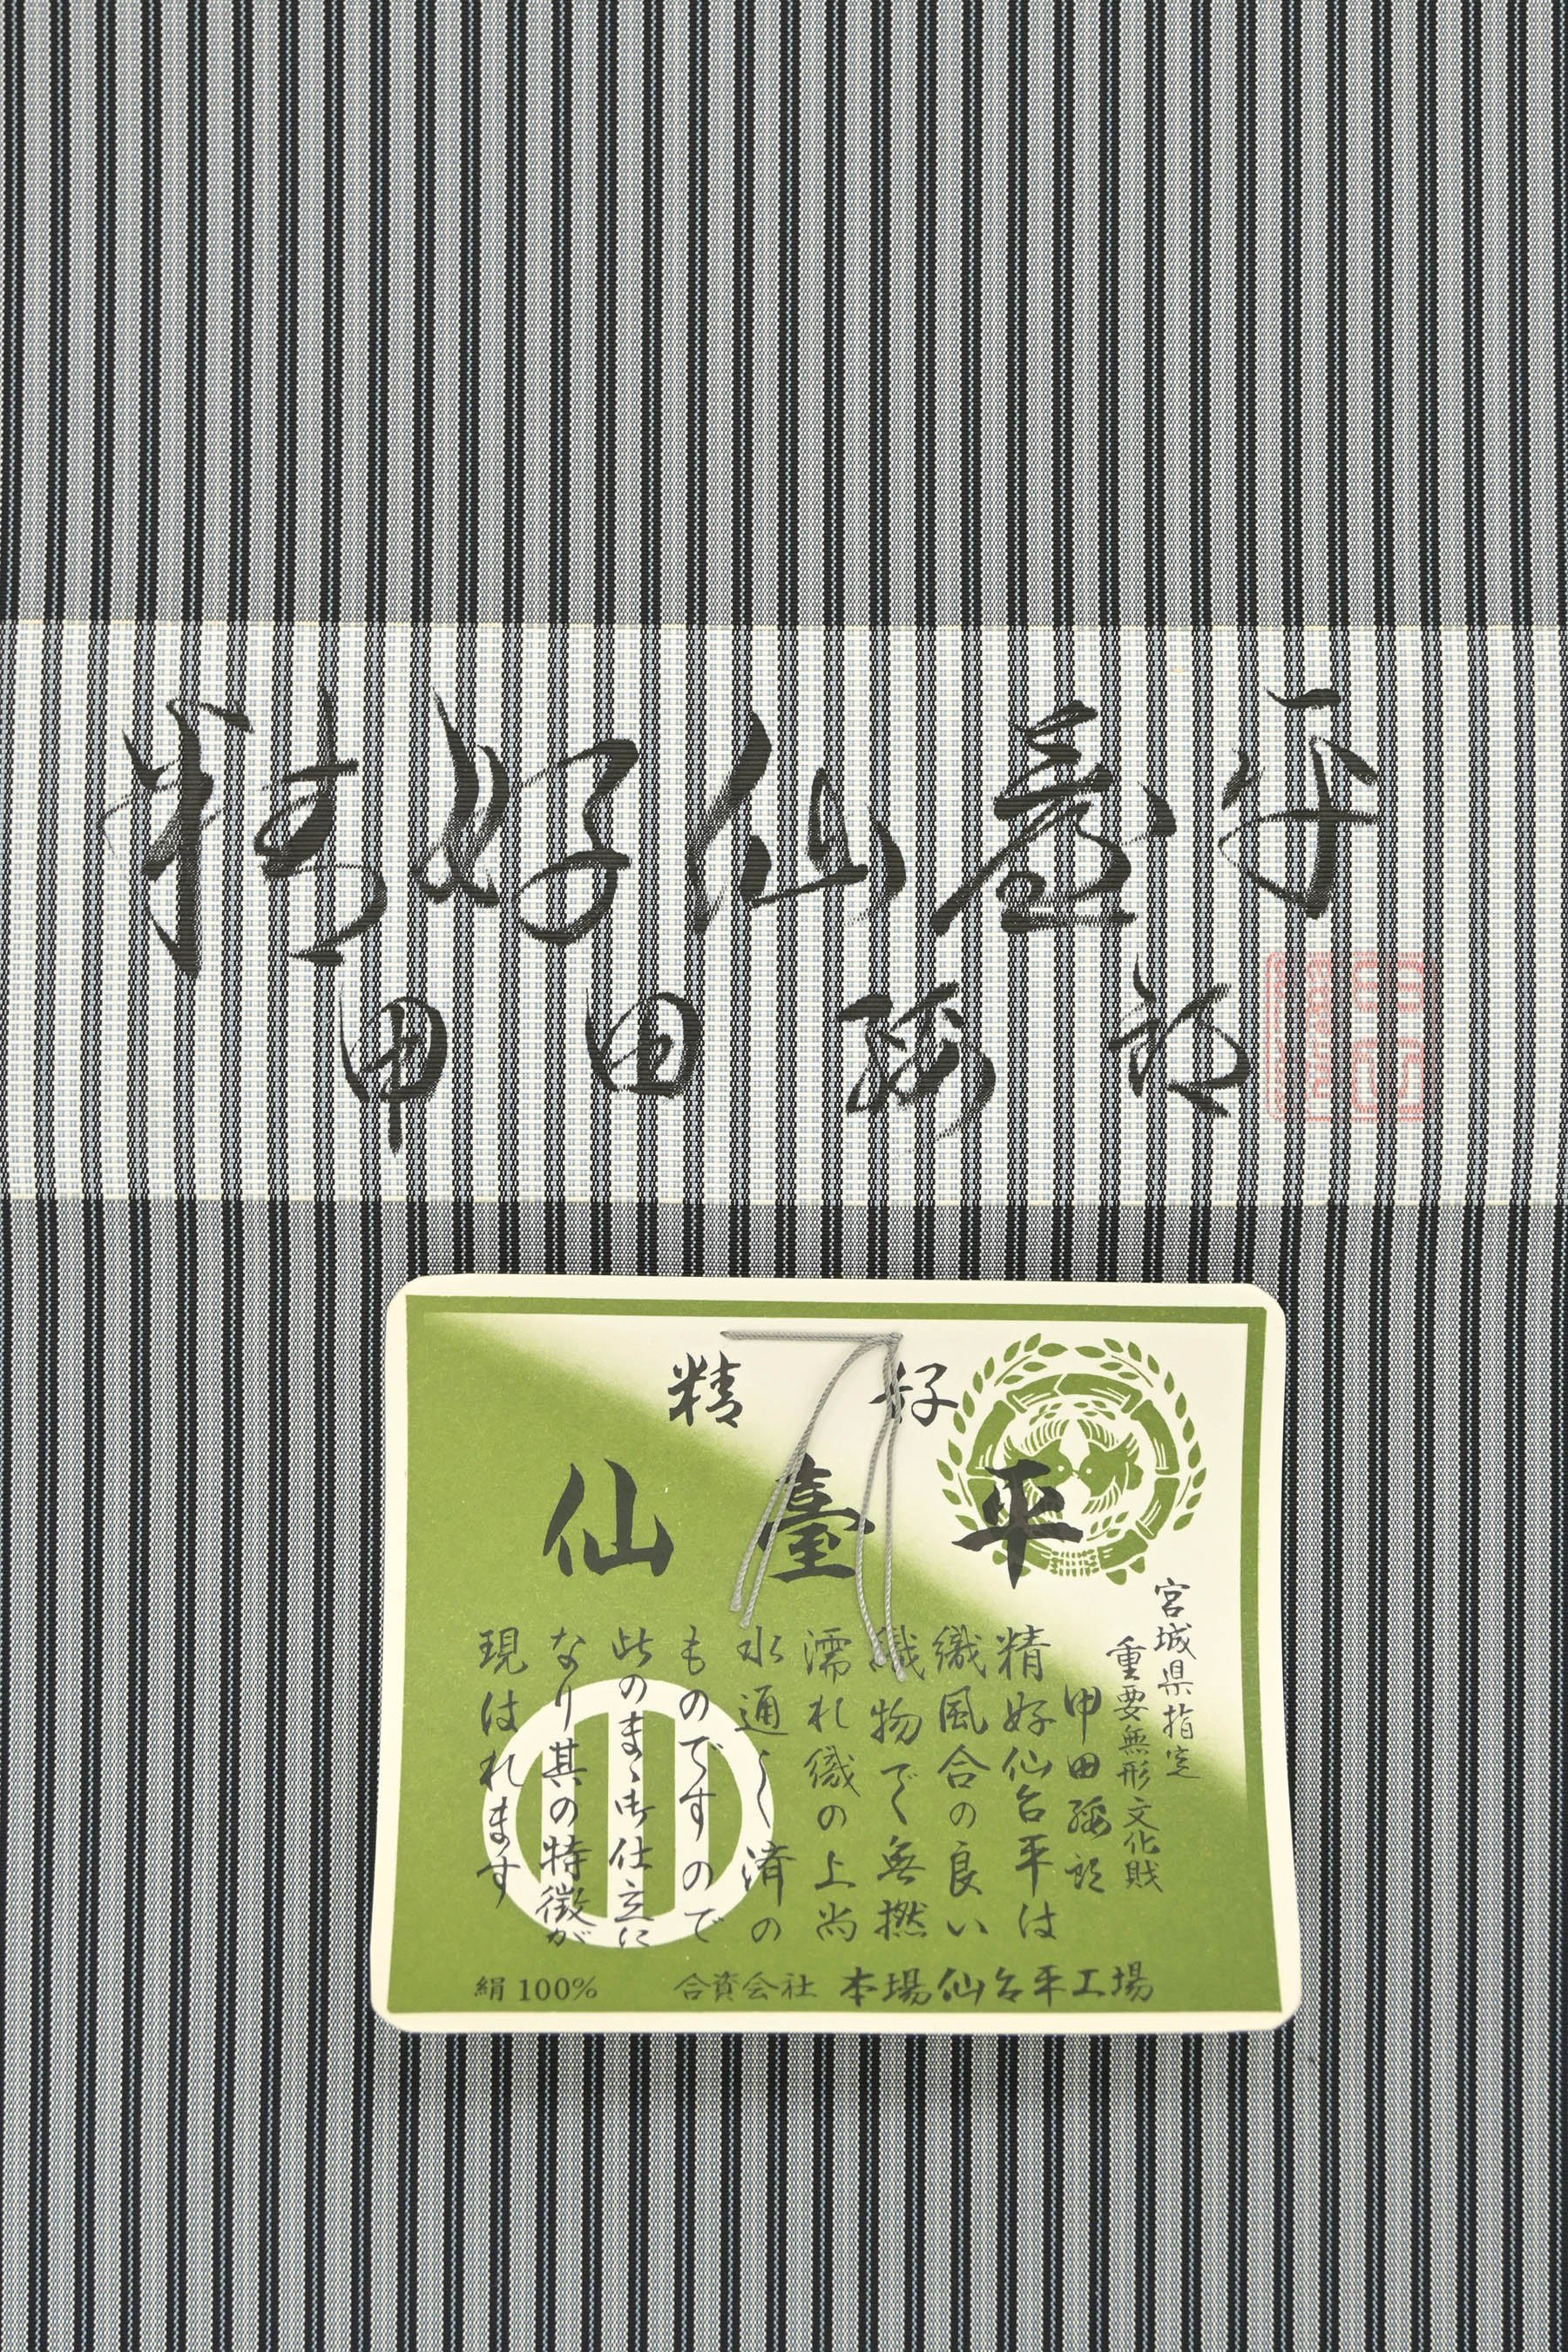 精好仙臺平
甲田綏郎
精好
仙臺平
宮城県指定
重要無形文化財
甲田綏郎
精好仙台平は
織風合の良い
織物で無撚
濡れ織の上尚
水通し済の
ものですので
此のまゝ御仕立に
なり其の特徴が
現はれます
絹100%
合資会社 本場仙台平工場